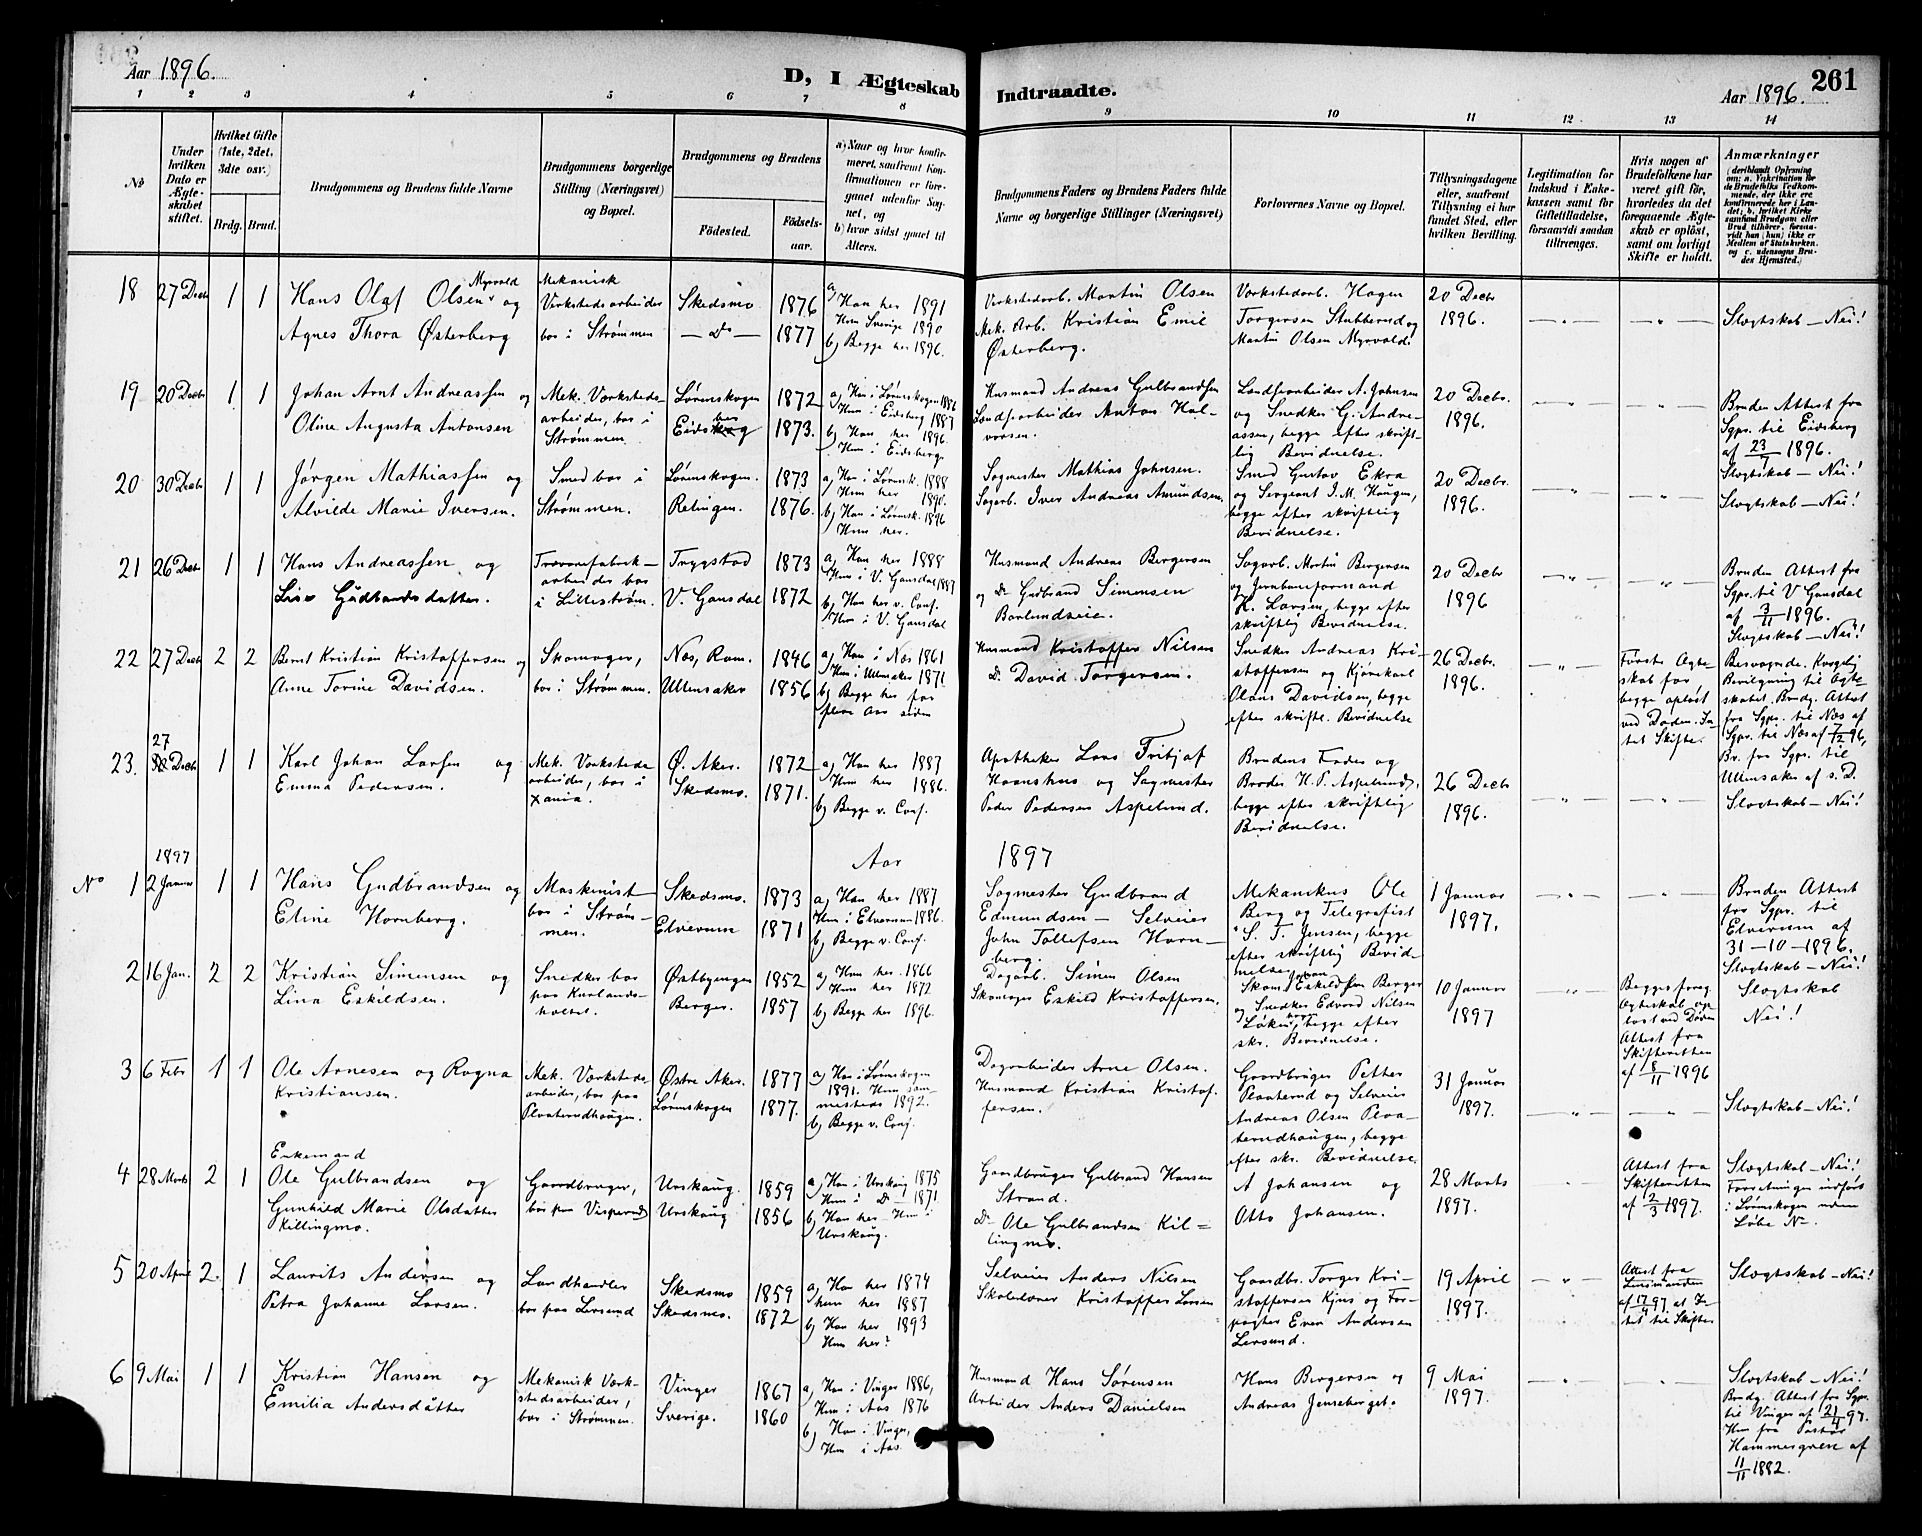 Aar 1896.
D, I Ægteskab Indtraadte.
Aar 1896.
261
1 2 3 4 5 6 7 8 9 10 11 12 13 14
No
Under hvilken Dato er Ægteskabet stiftet.
Hvilket Gifte (1ste, 2det, 3die osv.)
Brdg. Brud.
Brudgommens og Brudens fulde Navne
Brudgommens borgerlige Stilling (Næringsvei) og Bopæl.
Brudgommens og Brudens
Födested.
Födsels-aar.
a) Naar og hvor konfirmeret, saafremt Konfirmationen er foregaaet udenfor Sognet, og
b) hvor sidst gaaet til Alters.
Brudgommens Faders og Brudens Faders fulde Navne og borgerlige Stillinger (Næringsvei)
Forlovernes Navne og Bopæl.
Tillysningsdagene eller, saafremt Tillysning ei har fundet Sted, efter hvilken Bevilling.
Legitimation for Indskud i Enkekassen samt for Giftetilladelse, forsaavidt saadan tiltrænges.
Hvis nogen af Brudefolkene har været gift för, hvorledes da det foregaaende Ægteskab er oplöst, samt om lovligt Skifte er holdt.
Anmærkninger
(deriblandt Oplysning om: a. Vakcination for de Brudefolks Vedkommende, der ikke ere konfirmerede her i Landet; b. hvilket Kirkesamfund Brudgom eller Brud tilhörer, forsaavidt han (hun) ikke er Medlem af Statskirken, og c. udensogns Brudes Hjemsted.)
18 27 Decbr 1 1
Hans Olaf Olsen Myrvold og
Agnes Thora Østerberg
Mekanisk
Verkstedsarbeider
bor i Strømmen
Skedsmo 1876
— Do — 1877
a) Han her 1891
Hun Sverige 1890
b) Begge her 1896.
Verkstedarb. Martin Olsen
Mek. Arb. Kristian Emil
Østerberg.
Verkstedarb. Hagen
Torgersen Stubberud og
Martin Olsen Myrvold.
20 Decbr
1896.
Slægtskab – Nei!
19 20 Decbr 1 1
Johan Arnt Andreassen og
Oline Augusta Antonsen
Mek. Værksteds-
arbeider, bor i
Strømmen
Lørenskogen 1872
Eidsberg 1873.
a) Han i Lørenskogen 1886
Hun i Eidsberg 1887
b) Han her 1896.
Hun i Eidsberg.
Husmand Andreas Gulbrandsen
Landsarbeider Anton Hal-
vorsen.
Landsarbeider A. Johnsen
og Snedker G. Andre-
assen, begge efter skrift-
lig Bevidnelse.
20 Decbr.
1896.
Bruden Attest fra
Sgpr. til Eidsberg
af 23/7 1896.
Slægtskab – Nei!
20 30 Decbr 1 1
Jørgen Mathiassen og
Alvilde Marie Iversen.
Smed bor i
Strømmen.
Lørenskogen. 1873
Relingen. 1876.
a) Han i Lørensk. 1888
Hun her 1890.
b) Han i Lørensk. 1896
Hun her.
Sagmester Mathias Johnsen.
Sagarb. Iver Andreas Amundsen.
Smed Gustav Ekra
og Sergeant I. M. Haugen,
begge efter skriftlig
Bevidnelse.
20 Decbr
1896.
Slægtskab – Nei!
21 26 Decbr 1 1
Hans Andreassen og
Lise Gudbrandsdatter.
Trævarefabrik-
arbeider bor
i Lillestrøm.
Trygstad 1873
V. Gausdal 1872
a) Han her 1888
Hun i V. Gausdal 1887
b) Han her v. Conf.
Hun i V. Gausdal
Husmand Andreas Bergersen
og Do Gudbrand Simensen
Baklundseie.
Sagarb. Martin Bergersen
og Jernbaneformand
H. Larsen, begge efter
skriftlig Bevidnelse.
20 Decbr
1896
Bruden Attest fra
Sgpr. til V Gausdal
af 3/11 1896.
Slægtskab – Nei!
22 27 Decbr 2 2
Bernt Kristian Kristoffersen og
Anne Torine Davidsen.
Skomager,
bor i Strømmen.
Næs, Rom. 1846
Ullensaker 1856
a) Han i Næs 1861
Hun i Ullensaker 1871
b) Begge her for
flere Aar siden
Husmand Kristoffer Nilsen
Do David Torgersen.
Snedker Andreas Kri-
stoffersen og Kjørekarl
Olaus Davidsen, begge
efter skriftl. Bevidnelse
26 Decbr.
1896.
Første Ægte-
skab for
begge opløst
ved Døden. In-
tet Skifte.
Besvogrede. Kongelig
Bevilgning til Ægte-
skabet. Brudg. Attest
fra Sgpr. til Næs af
Sgpr. til Næs af 7/12 96,
Br. fra Sgpr. til
Ullensaker af s. D.
Slægtskab – Nei!
23. 27 Decbr 1 1
Karl Johan Larsen og
Emma Pedersen.
Mek. Værksteds-
arbeider, bor i
Xania.
Ø. Aker. 1872
Skedsmo. 1871.
a) Han her 1887
Hun her 1886.
b) Begge v. Conf.
Apotheker Lars Fritjof
Haanshus og Sagmester
Peder Pedersen Aspelund.
Brudens Fader og
Broder H. P. Aspelund,
begge efter skriftlig
Bevidnelse.
26 Decbr
1896.
Aar 1897
No 1 1897 2 Januar 1 1
Hans Gudbrandsen og
Eline Hornberg.
Maskinist
bor i Strøm-
men.
Skedsmo. 1873
Elverum 1871
a) Han her 1887
Hun i Elverum 1886.
b) Begge v. Conf.
Sagmester Gudbrand
Edmundsen – Selveier
John Tollefsen Horn-
berg.
Mekanikus Ole
Berg og Telegrafist
S. T. Jensen, begge
efter skriftlig Bevid-
nelse.
1 Januar
1897.
Bruden Attest
fra Sgpr. til
Elverum af
31-10-1896.
Slægtskab – Nei!
2 16 Jan. 2 2
Kristian Simensen og
Lina Eskildsen.
Snedker bor
paa Kurlands-
holtet.
Østbyengen 1852
Berger. 1857
a) Han her 1866
Hun her 1872
b) Begge her 1896.
Dagarb. Simen Olsen
Skomager Eskild Kristoffersen.
Skom. Johan Eskildsen Berger
og Snedker Edvard Nilsen
Løken, begge efter
skr. Bevidnelse.
10 Januar
1897
Begges foreg.
Ægteskab op-
løst ved Døden
Attest fra
Skifteretten
af 8/11 1896
Slægtskab
Nei!
3 6 Febr 1 1
Ole Arnesen og Ragna
Kristiansen.
Mek. Værksteds-
arbeider, bor paa
Plaaterudhaugen.
Østre Aker. 1877
Lørenskogen 1877.
a) Han i Lørenskogen
1891. Hun sam-
mesteds 1892.
b) Begge v. Conf.
Dagarbeider Arne Olsen.
Husmand Kristian Kristof-
fersen.
Gaardbruger Petter
Plaaterud og Selveier
Andreas Olsen Plaa-
terudhaugen, begge
efter skr. Bevidnelse.
31 Januar
1897.
Slægtskab – Nei!
4 28 Marts 2 1
Enkemand
Ole Gulbrandsen og
Gunhild Marie Olsdatter
Killingmo.
Gaardbruger,
bor paa Visperud
Urskaug. 1859
Urskaug 1856
a) Han i Urskaug 1875
Hun i Do – 1871.
b) Han her – Hun i
Urskaug.
Gaardbruger Gulbrand Hansen
Strand.
Do Ole Gulbrandsen Kil-
lingmo.
A Johansen og
Otto Johansen.
28 Marts
1897.
Attest fra
Skifteretten
af 2/3 1897.
Slægtskab – Nei!
Forretningen indført
i Lørenskogen uden
Løbe No.
5 20 April 2. 1
Laurits Andersen og
Petra Johanne Larsen.
Landhandler
bor paa Leirsund
Skedsmo 1859
Skedsmo. 1872
a) Han her 1874
hun her 1887
b) Han her 1893
Hun her?
Selveier Anders Nilsen
Skolelærer Kristoffer Larsen
Gaardbr. Torger Kri-
stoffersen Kjus og For-
pagter Even Andersen
Leirsund.
19 April
1897.
Attest fra
Lensmanden
af 17/4 97. at In-
tet til Skifte
Slægtskab – Nei!
6 9 Mai 1 1
Kristian Hansen og
Emilia Andersdatter
Mekanisk Værk-
stedsarbeider,
bor i Strømmen.
Vinger 1867
Sverige. 1860
a) Han i Vinger 1886,
Hun i Aas 1876
b) Han i Vinger,
Hun i Aas.
Husmand Hans Sørensen
Arbeider Anders Danielsen
Hans Bergersen og
Andreas Jenseberget.
9 Mai
1897.
Slægtskab – Nei!
Brudg. Attest fra Sgpr.
til Vinger af 21/4 97.
Hun fra Pastor
Hammergreen af
11/11 1882.